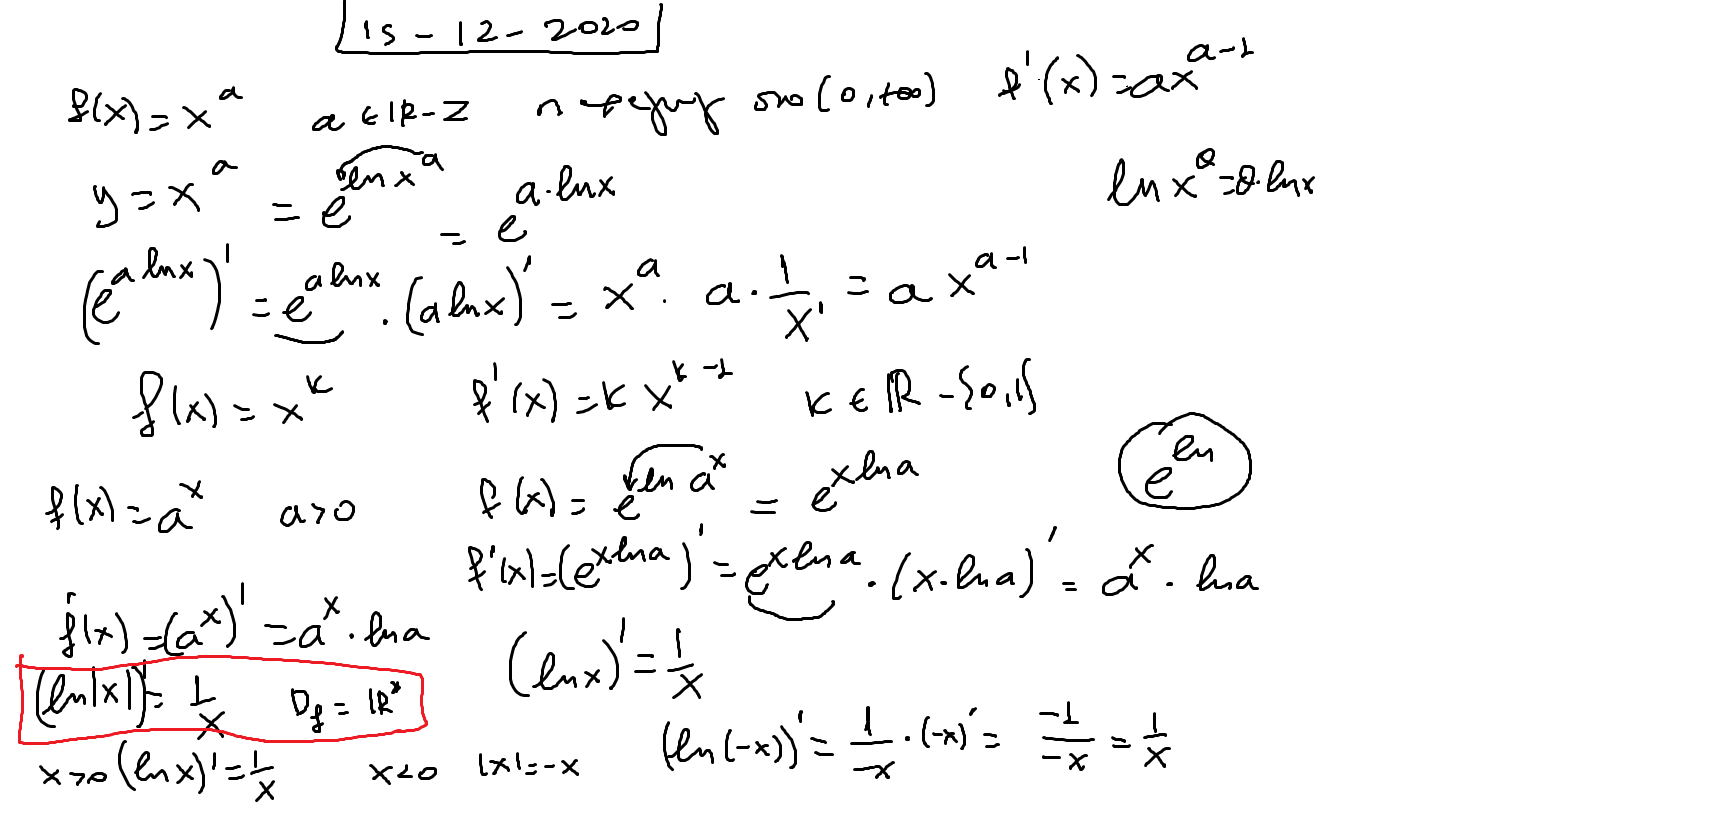 15 - 12 - 2020
f(x) = x^a   a ∈ ℝ - Z   η παραγωγ στο (0, +∞)   f'(x) = ax^{a-1}
y = x^a = e^{ln x^a} = e^{a·lnx}   ln x^θ = θ·lnx
(e^{a lnx})' = e^{a lnx} · (a lnx)' = x^a · a · 1/x = a x^{a-1}
f(x) = x^κ   f'(x) = κ x^{κ-1}   κ ∈ ℝ - {0,1}
e^{ln}
f(x) = a^x   a>0   f(x) = e^{ln a^x} = e^{x lna}
f'(x) = (e^{x lna})' = e^{x lna} · (x·lna)' = a^x · lna
f'(x) = (a^x)' = a^x · lna   (lnx)' = 1/x
(ln|x|)' = 1/x   D_f = ℝ*
x>0 (lnx)' = 1/x   x<0   |x| = -x   (ln(-x))' = 1/-x · (-x)' = -1/-x = 1/x